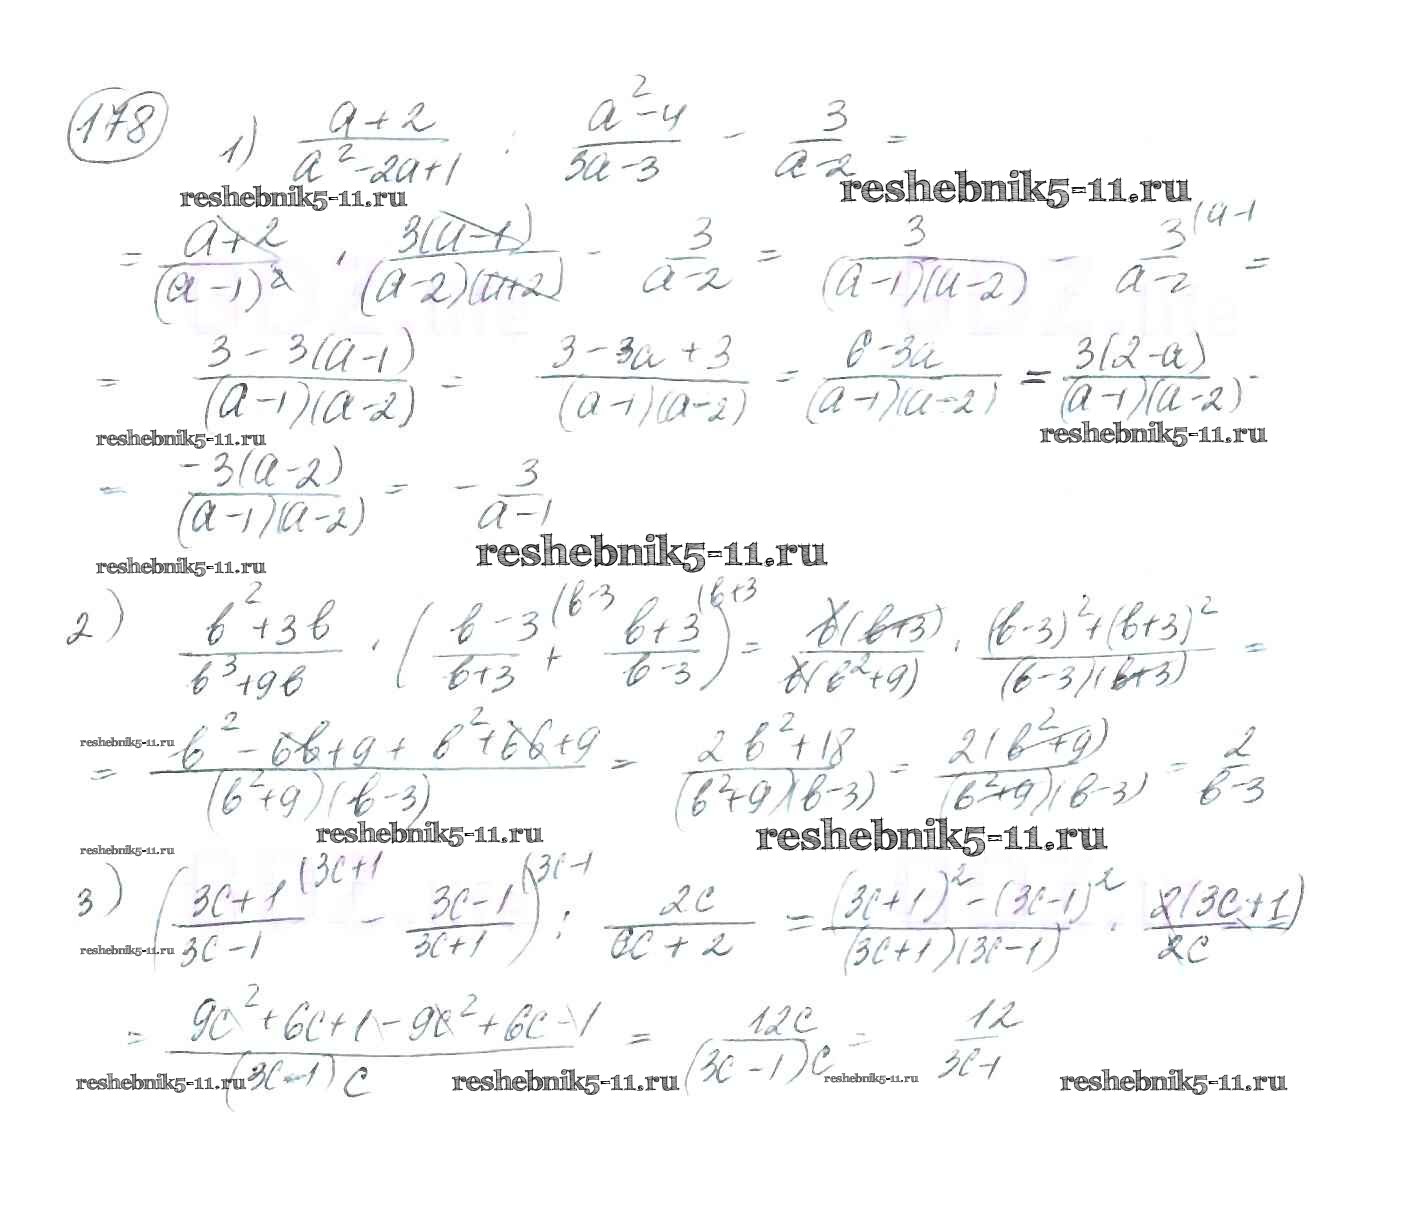 178 1) (a+2)/(a²-2a+1) : (a²-4)/(3a-3) - 3/(a-2) =
reshebnik5-11.ru reshebnik5-11.ru
= (a+2)/(a-1)² · 3(a-1)/((a-2)(a+2)) - 3/(a-2) = 3/((a-1)(a-2)) - 3(a-1/(a-2) =
= (3-3(a-1))/((a-1)(a-2)) = (3-3a+3)/((a-1)(a-2)) = (6-3a)/((a-1)(a-2)) = 3(2-a)/((a-1)(a-2)) -
reshebnik5-11.ru reshebnik5-11.ru
= -3(a-2)/((a-1)(a-2)) = - 3/(a-1)
reshebnik5-11.ru reshebnik5-11.ru
2) (b²+3b)/(b³+9b) · ((b-3)/(b+3) (b-3 + (b+3)/(b-3) (b+3) = b(b+3)/(b(b²+9)) · ((b-3)²+(b+3)²)/((b-3)(b+3)) =
reshebnik5-11.ru
= (b²-6b+9+b²+6b+9)/((b²+9)(b-3)) = (2b²+18)/((b²+9)(b-3)) = 2(b²+9)/((b²+9)(b-3)) = 2/(b-3)
reshebnik5-11.ru reshebnik5-11.ru
reshebnik5-11.ru
3) ((3c+1)/(3c-1) (3c+1 - (3c-1)/(3c+1) (3c-1) : 2c/(6c+2) = ((3c+1)²-(3c-1)²)/((3c+1)(3c-1)) · 2(3c+1)/2c
reshebnik5-11.ru
= (9c²+6c+1-9c²+6c-1)/((3c-1)c) = 12c/((3c-1)c) = 12/(3c-1)
reshebnik5-11.ru reshebnik5-11.ru reshebnik5-11.ru reshebnik5-11.ru